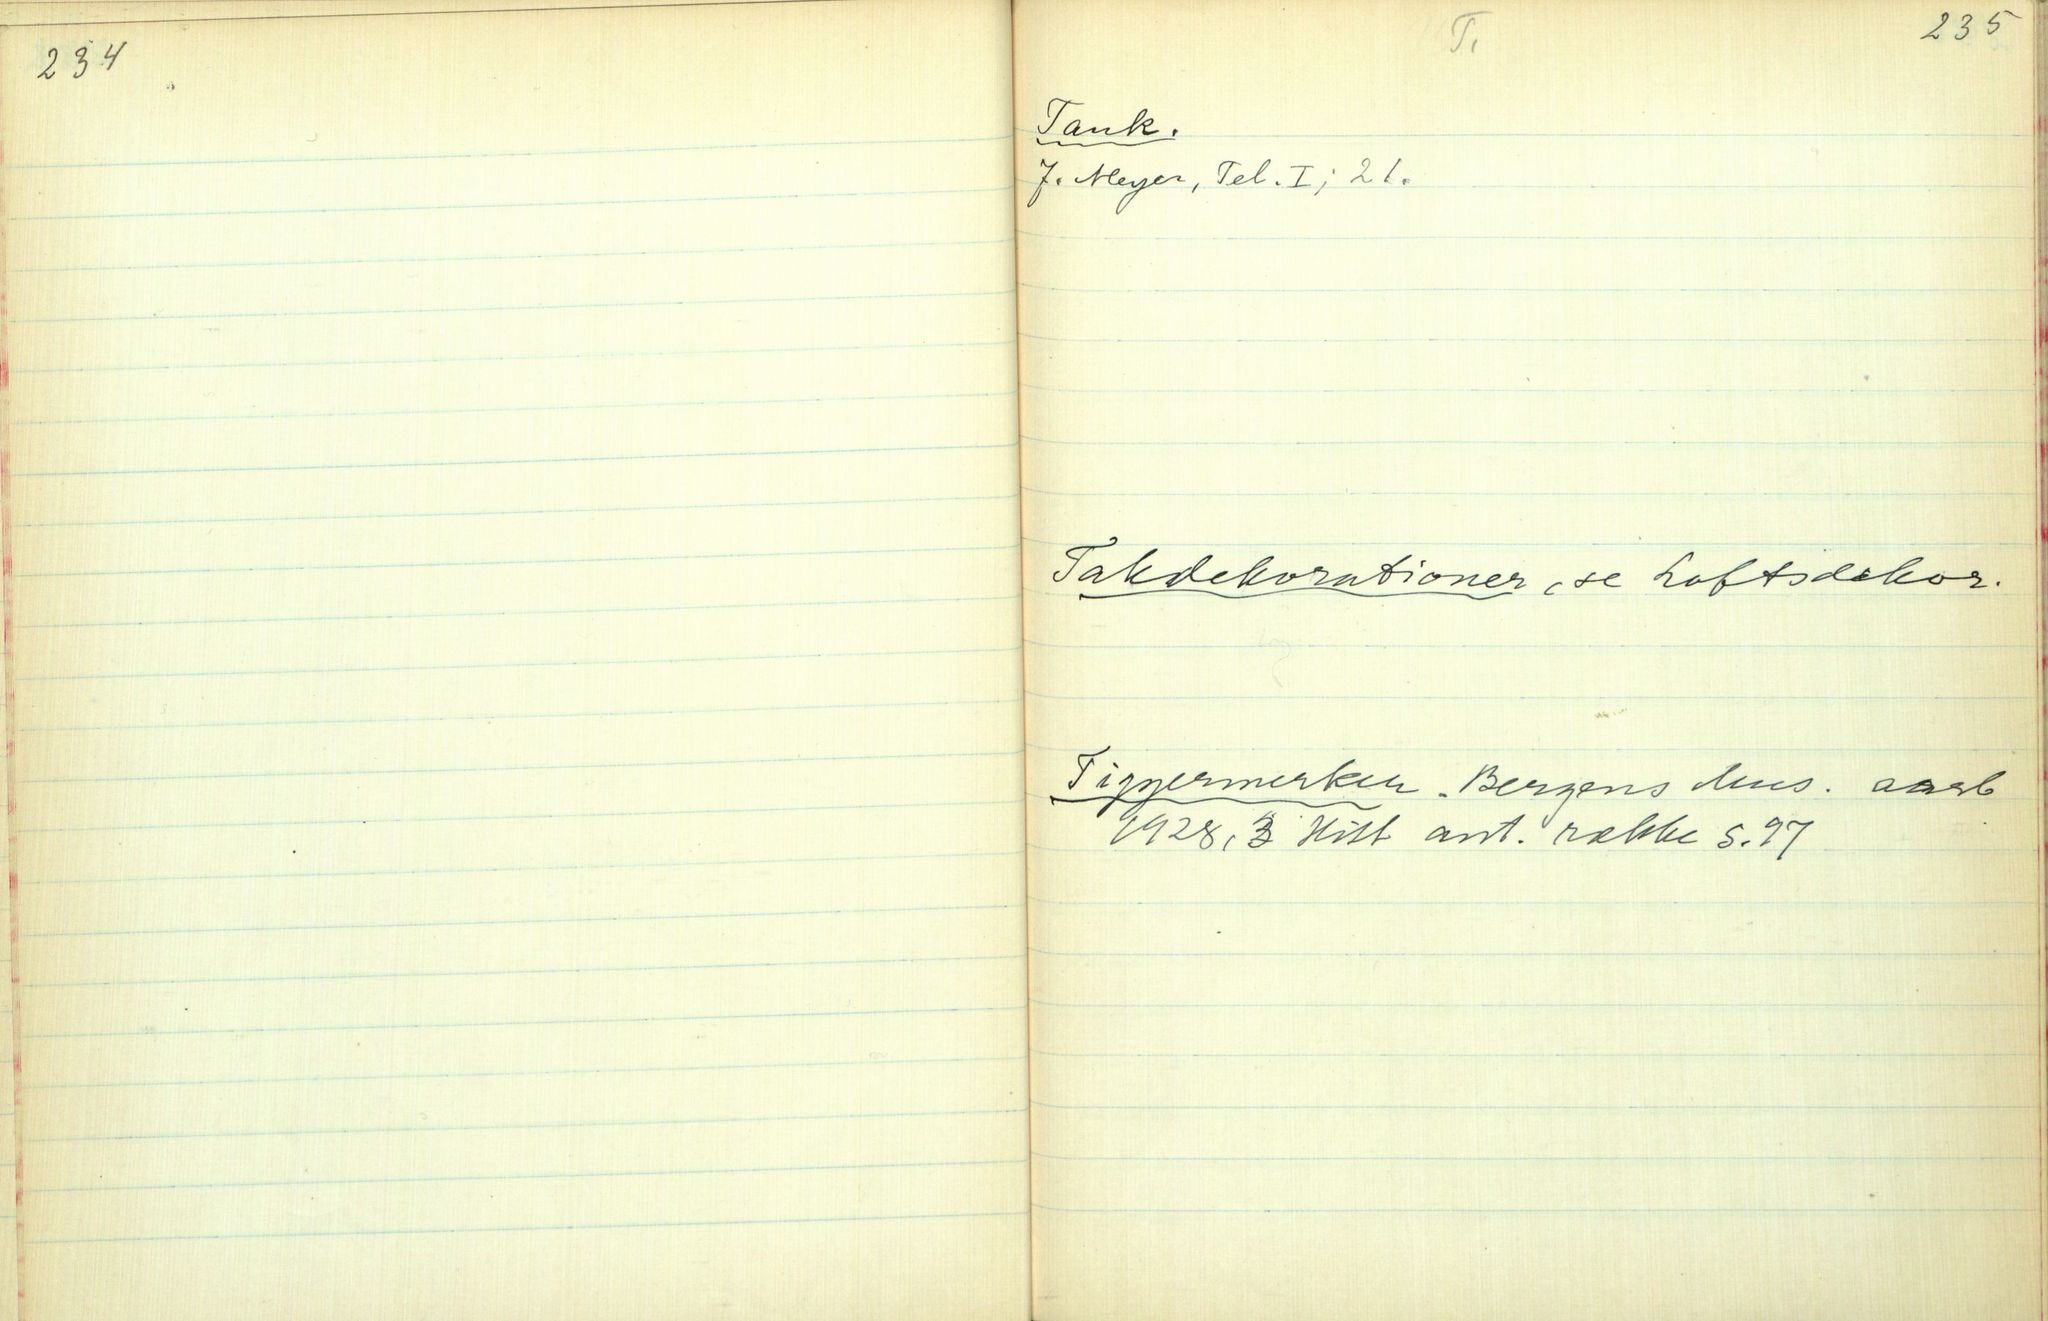 234
T.
235
Tank.
J. Meyer, Tel. I; 21.
Takdekorationer, se Loftsdekor.
Tiggermerker. Bergens Mus. aarb
1928, 3 Hist ant. rekke s. 97